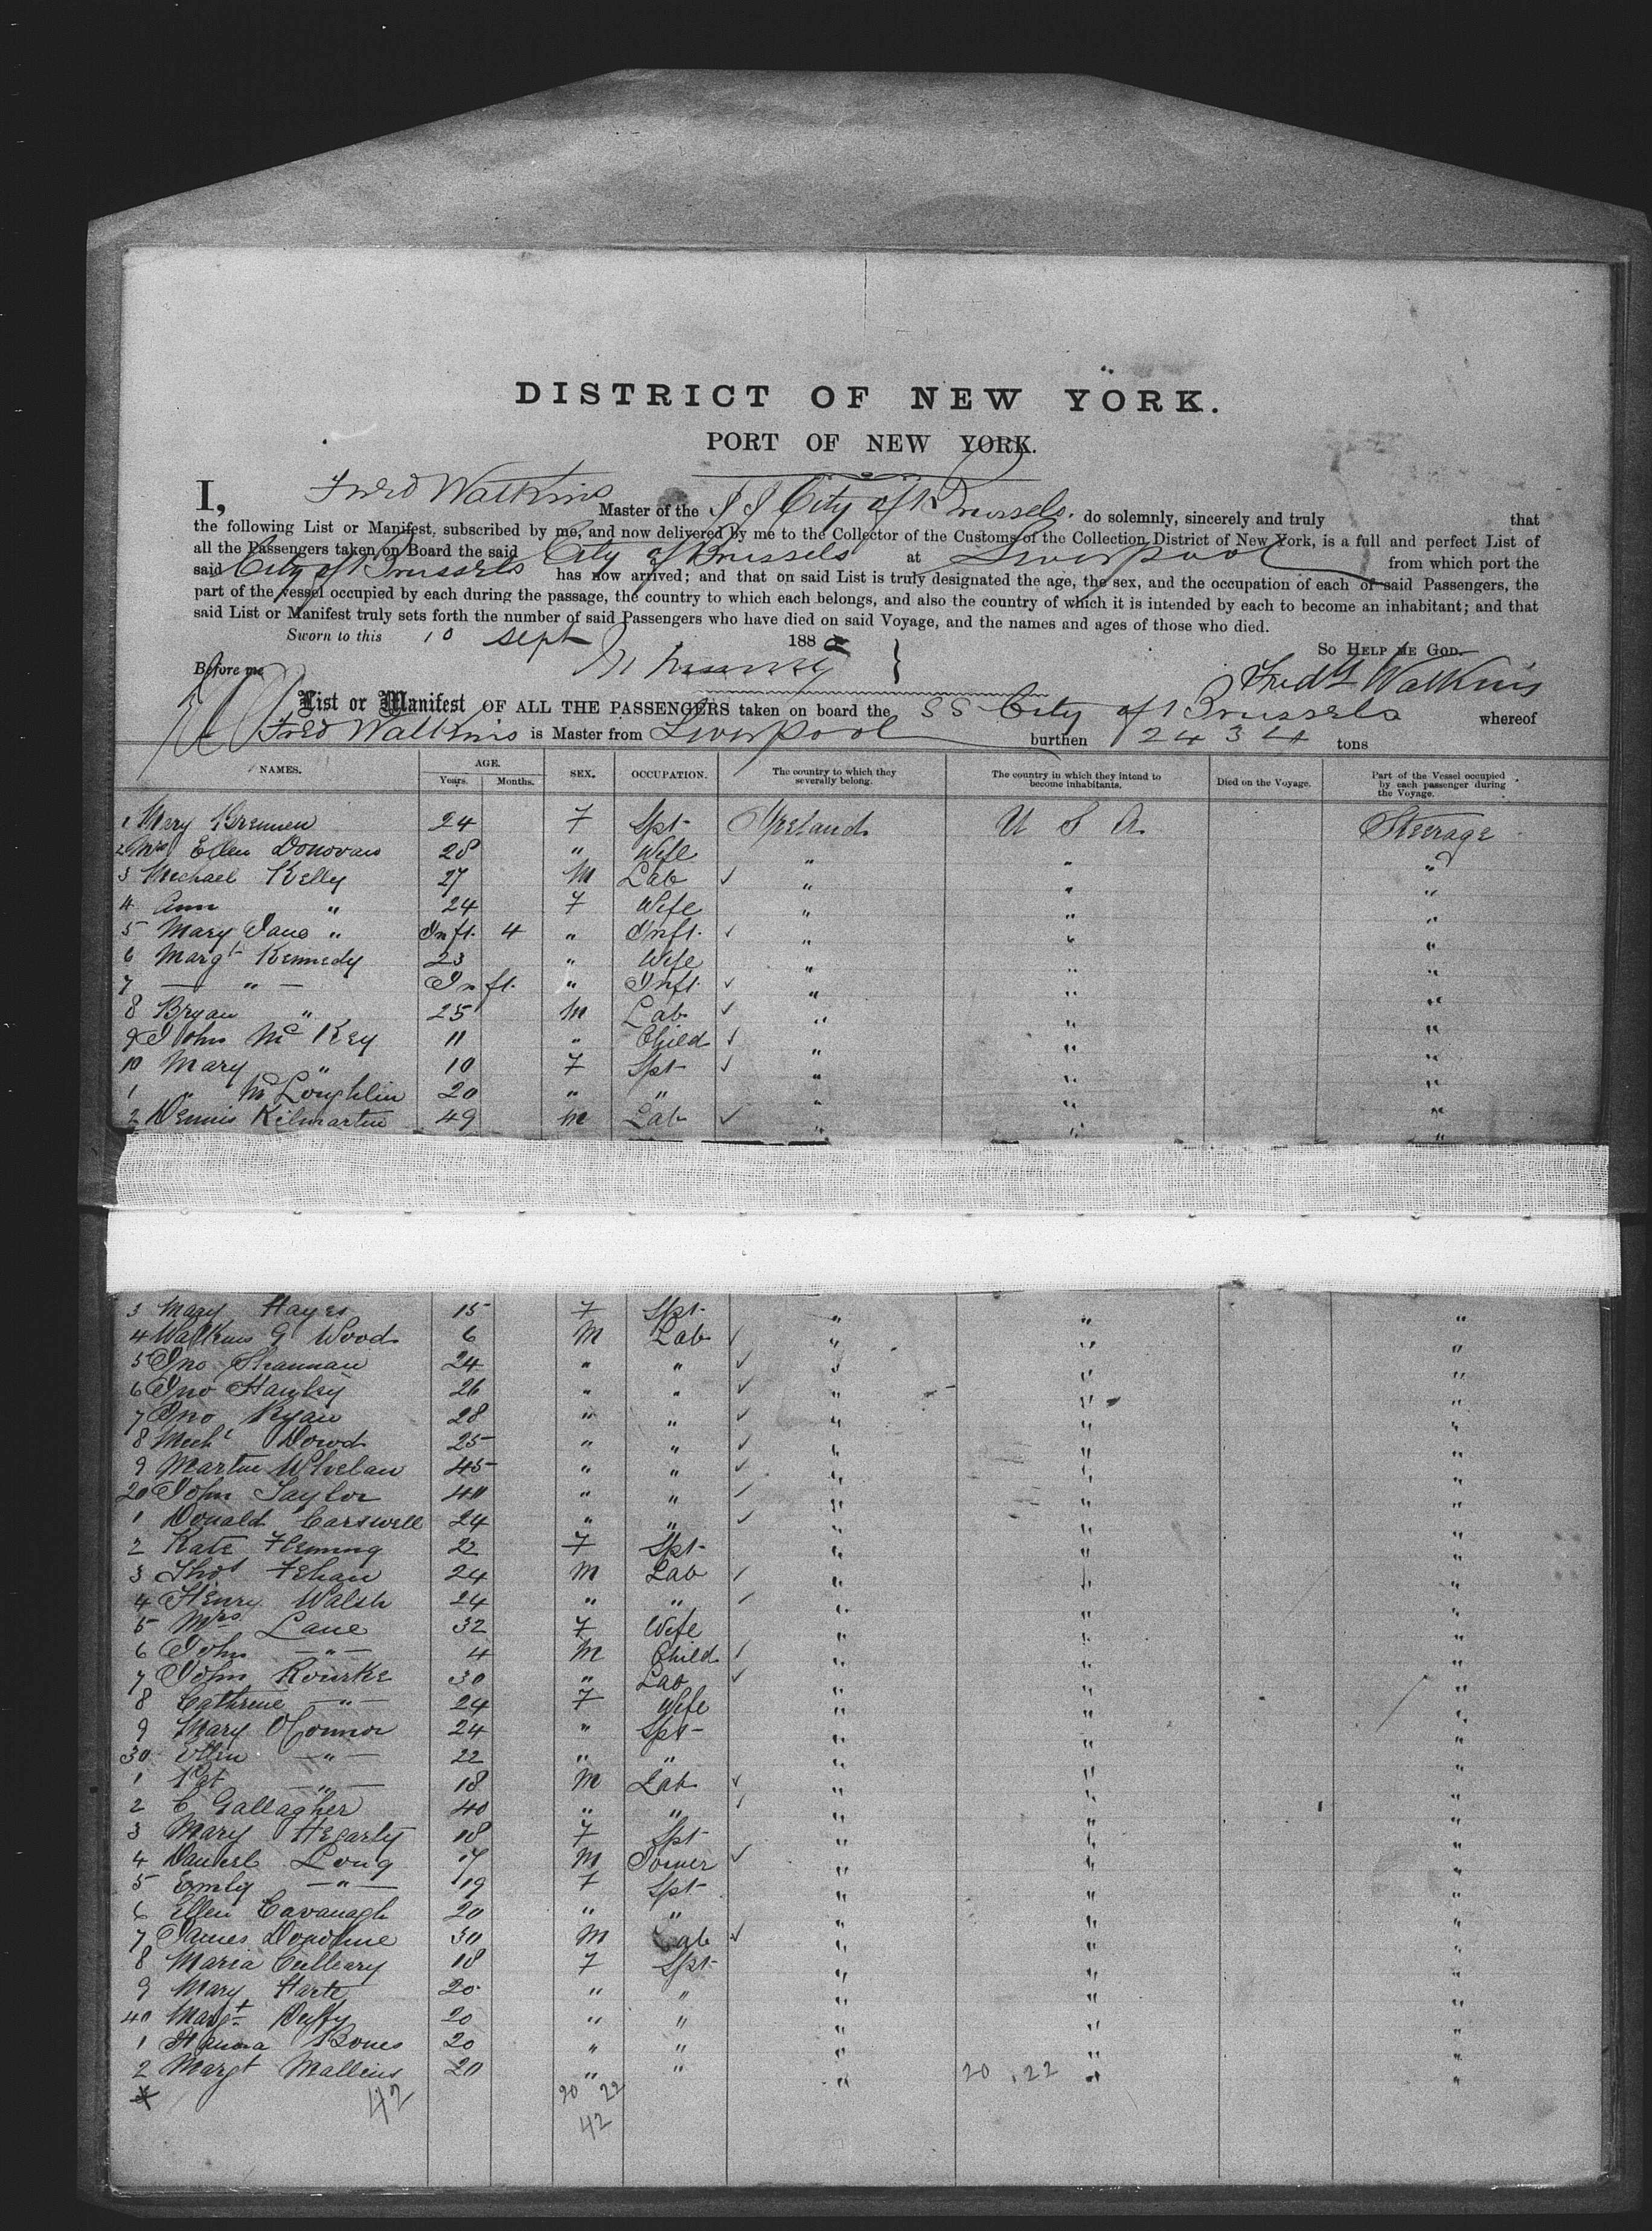 DISTRICT OF NEW YORK.
PORT OF NEW YORK.
I, Fred Watkins Master of the S S City of Brussels. do solemnly, sincerely and truly that
the following List or Manifest, subscribed by me, and now delivered by me to the Collector of the Customs of the Collection District of New York, is a full and perfect List of
all the Passengers taken on Board the said City of Brussels at Liverpool from which port the
said City of Brussels has now arrived; and that on said List is truly designated the age, the sex, and the occupation of each of said Passengers, the
part of the vessel occupied by each during the passage, the country to which each belongs, and also the country of which it is intended by each to become an inhabitant; and that
said List or Manifest truly sets forth the number of said Passengers who have died on said Voyage, and the names and ages of those who died.
Sworn to this 10 Sept 188 So Help me God.
Before me Fred Watkins
List or Manifest OF ALL THE PASSENGERS taken on board the SS City of Brussels whereof
Fred Watkins is Master from Liverpool burthen 2434 tons
NAMES. AGE. Years. Months. SEX. OCCUPATION. The country to which they severally belong. The country in which they intend to become inhabitants. Died on the Voyage. Part of the Vessel occupied by each passenger during the Voyage.
1 Mary Brennen 24 F Spt Ireland U S A Steerage
2 Mrs Ellen Donovan 28 " Wife " " "
3 Michael Kelly 27 M Lab " " "
4 Ann " 24 F Wife " " "
5 Mary Jane " Inft. 4 " Inft. " " "
6 Margt Kennedy 23 " Wife " " "
7 — " — Inft. " Inft. " " "
8 Bryan " 25 M Lab " " "
9 John McKey 11 " Child " " "
10 Mary " 10 F Spt " " "
1 " McLoughlin 20 " " " " "
2 Dennis Kilmartin 49 M Lab " " "
3 Mary Hayes 15 F Spt " " "
4 Watkins G Wood 6 M Lab " " "
5 Jno Shannan 24 " " " " "
6 Jno Hanley 26 " " " " "
7 Jno Ryan 28 " " " " "
8 Michl Dowd 25 " " " " "
9 Martin Whelan 45 " " " " "
20 John Taylor 40 " " " " "
1 Donald Carswell 24 " " " " "
2 Kate Fleming 22 F Spt " " "
3 Thos Fehan 24 M Lab " " "
4 Henry Walsh 24 " " " " "
5 Mrs Lane 32 F Wife " " "
6 John — " — 4 M Child " " "
7 John Rourke 30 " Lab " " "
8 Cathrine — " — 24 F Wife " " "
9 Mary O'Connor 24 " Spt " " "
30 Ellen — " — 22 " " " " "
1 Pat — " — 18 M Lab " " "
2 C Gallagher 40 " " " " "
3 Mary Hegarty 18 F Spt " " "
4 Daniel Long 17 M Joiner " " "
5 Emily — " — 19 F Spt " " "
6 Ellen Cavanagh 20 " " " " "
7 James Donohue 30 M Lab " " "
8 Maria Culleary 18 F Spt " " "
9 Mary Harte 20 " " " " "
40 Margt Duffy 20 " " " " "
1 Hanora Bones 20 " " " " "
2 Margt Mallins 20 " " " 20 . 22 " "
42 20 22
42